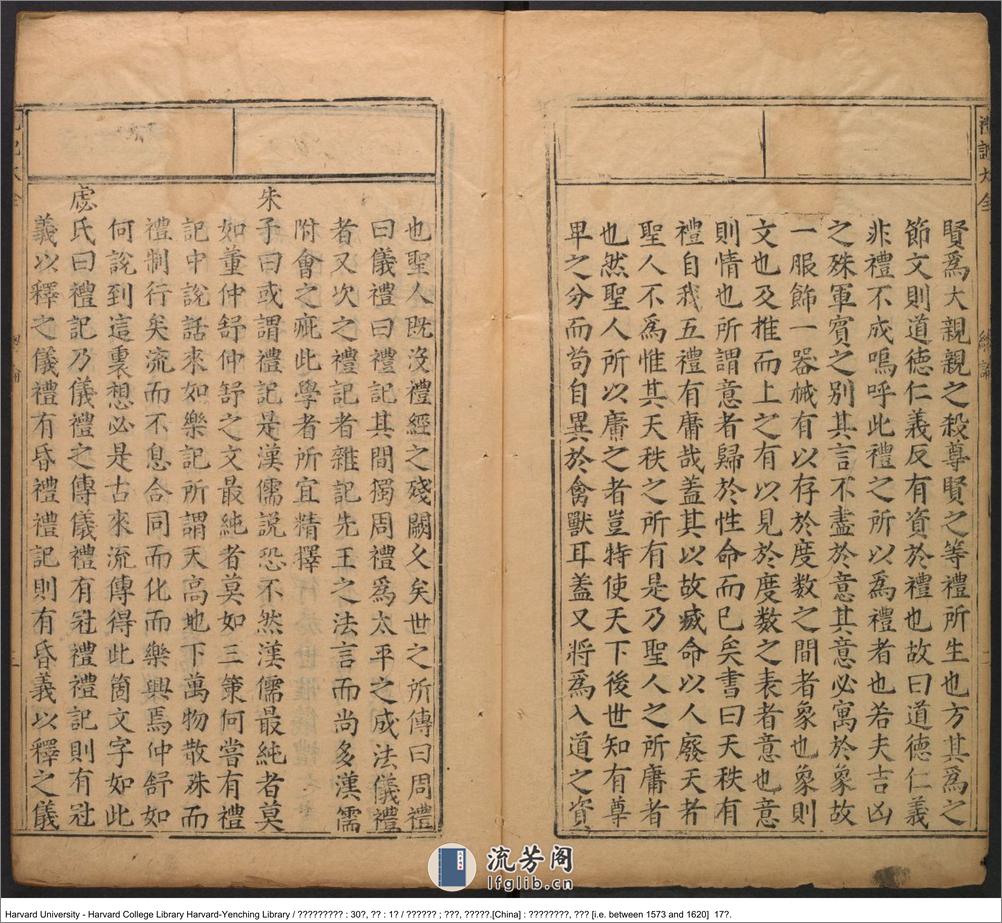 禮記大全
總論
賢爲大親親之殺尊賢之等禮所生也方其爲之
節文則道德仁義反有資於禮也故曰道德仁義
非禮不成嗚呼此禮之所以爲禮者也若夫吉凶
之殊軍賓之別其言不盡於意其意必寓於象故
一服飾一器械有以存於度數之間者象也象則
文也及推而上之有以見於度數之表者意也意
則情也所謂意者歸於性命而已矣書曰天秩有
禮自我五禮有庸哉蓋其以故滅命以人廢天者
聖人不爲惟其天秩之所有是乃聖人之所庸者
也然聖人所以庸之者豈特使天下後世知有尊
卑之分而苟自異於禽獸耳蓋又將爲入道之資
也聖人既沒禮經之殘闕久矣世之所傳曰周禮
曰儀禮曰禮記其間獨周禮爲太平之成法儀禮
者又次之禮記者雜記先王之法言而尚多漢儒
附會之疵此學者所宜精擇
朱子曰或謂禮記是漢儒說恐不然漢儒最純者莫
如董仲舒仲舒之文最純者莫如三策何嘗有禮
記中說話來如樂記所謂天高地下萬物散殊而
禮制行矣流而不息合同而化而樂興焉仲舒如
何說到這裏想必是古來流傳得此箇文字如此
虙氏曰禮記乃儀禮之傳儀禮有冠禮禮記則有冠
義以釋之儀禮有昏禮禮記則有昏義以釋之儀
流芳阁
lfglib.cn
Harvard University - Harvard College Library Harvard-Yenching Library / ????????? : 30?, ?? : 1? / ?????? ; ???, ?????.[China] : ????????, ??? [i.e. between 1573 and 1620]  17?.